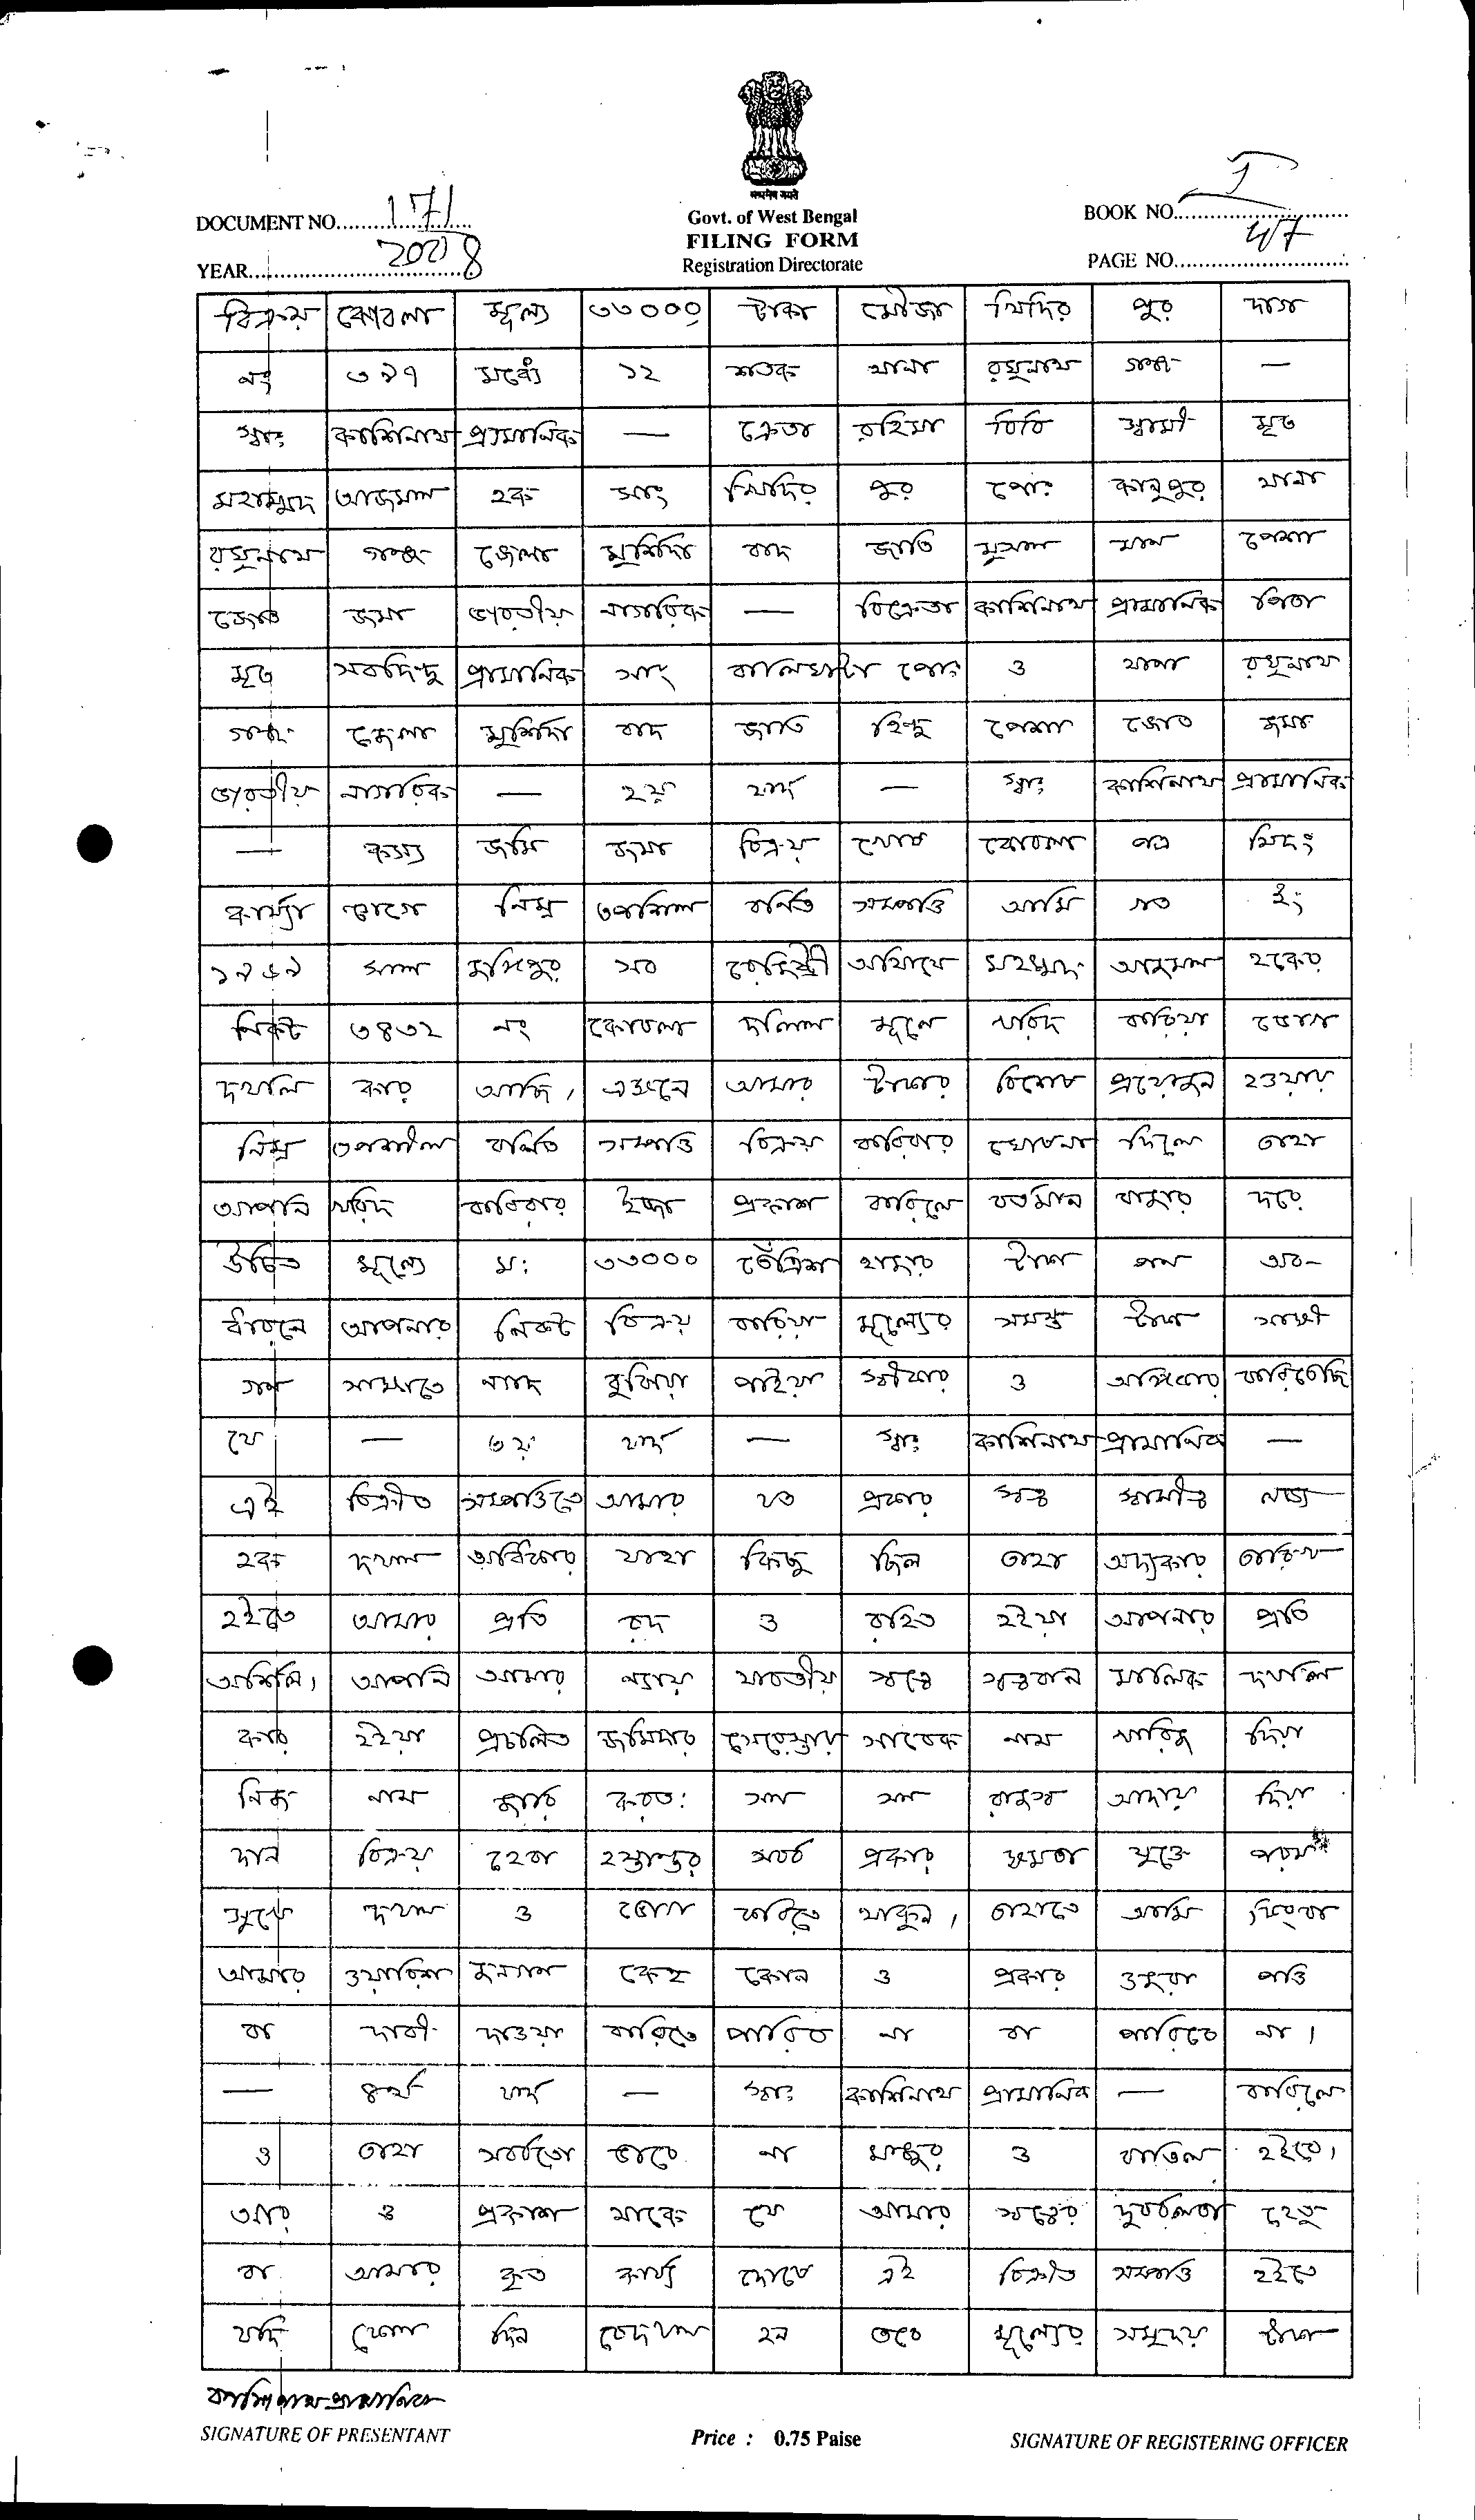 DOCUMENT NO. 171
YEAR 2008
सत्यमेव जयते
Govt. of West Bengal
FILING FORM
Registration Directorate
BOOK NO. I
PAGE NO. 47
বিক্রয় কোবলা মূল্য ৩৩০০০ টাকা মৌজা খিদির পুর দাগ
নং ৩৯৭ মধ্যে ১২ শতক থানা রঘুনাথ গঞ্জ —
স্বাঃ কাশিনাথ প্রামানিক — ক্রেতা রহিমা বিবি স্বামী মৃত
মহাম্মুদ আজমাল হক সাং খিদির পুর পোঃ কানুপুর থানা
রঘুনাথ গঞ্জ জেলা মুর্শিদা বাদ জাতি মুসল মান পেশা
জোত জমা ভারতীয় নাগরিক — বিক্রেতা কাশিনাথ প্রামানিক পিতা
মৃত সরদিন্দু প্রামানিক সাং বালিঘাটা পোঃ ও থানা রঘুনাথ
গঞ্জ জেলা মুর্শিদা বাদ জাতি হিন্দু পেশা জোত জমা
ভারতীয় নাগরিক — ২য় ফর্দ — স্বাঃ কাশিনাথ প্রামানিক
— কস্য জমি জমা বিক্রয় খোষ কোবলা পত্র মিদং
কার্য্যা ঞ্চাগে নিম্ন তপশিল বর্নিত সম্পত্তি আমি গত ইং
১৯৬৯ সাল জঙ্গিপুর সব রেজিষ্ট্রী অফিসে মহম্মদ আজমাল হকের
নিকট ৩৪৩২ নং কোবলা দলিল মূলে খরিদ করিয়া ভোগ
দখলি কার আছি, এক্ষনে আমার টাকার বিশেষ প্রয়োজন হওয়ায়
নিম্ন তপশীল বর্নিত সম্পত্তি বিক্রয় করিবার ঘোষনা দিলে তাহা
আপনি খরিদ করিবার ইচ্ছা প্রকাশ করিলে বর্তমান বাজার দরে
উচিত মূল্যে মঃ ৩৩০০০ তেঁত্রিশ হাজার টাকা পন অব-
ধারনে আপনার নিকট বিক্রয় করিয়া মূল্যের সমস্ত টাকা সাক্ষী
গন সাক্ষাতে নগদ বুঝিয়া পাইয়া স্বীকার ও অঙ্গিকার করিতেছি
যে — ৩য় ফর্দ — স্বাঃ কাশিনাথ প্রামানিক —
এই বিক্রীত সম্পত্তিতে আমার যত প্রকার স্বত্ত স্বামীত্ব লভ্য
হক দখল অধিকার যাহা কিছু ছিল তাহা অদ্যকার তারিখ
হইতে আমার প্রতি রদ ও রহিত হইয়া আপনার প্রতি
অর্শিল, আপনি আমার ন্যায় যাবতীয় স্বত্ত্বে স্বত্ত্ববান মালিক দখলি
কার হইয়া প্রচলিত জমিদার সেরেস্তায় সাবেক নাম খারিজ দিয়া
নিজ নাম জারি করতঃ সন সন রাজস্ব আদায় দিয়া
দান বিক্রয় হেবা হস্তান্তর সর্ব প্রকার ক্ষমতা যুক্তে পরম
সুখে দখল ও ভোগ করিতে থাকুন, তাহাতে আমি কিংবা
আমার ওয়ারিশ জনগন কেহ কোন ও প্রকার ওজর পত্তি
বা দাবী দাওয়া করিতে পারিব না বা পারিবে না।
— ৪র্থ ফর্দ — স্বাঃ কাশিনাথ প্রামানিক — করিলে
ও তাহা সর্বতো ভাবে না মঞ্জুর ও বাতিল হইবে,
আর ও প্রকাশ থাকে যে আমার স্বত্ত্বের দুর্বলতা হেতু
বা আমার কৃত কার্য্য দোষে এই বিক্রীত সম্পত্তি হইতে
যদি কোন দিন বেদখল হন তবে মূল্যের সমুদয় টাকা
কাশিনাথ প্রামানিক
SIGNATURE OF PRESENTANT
Price : 0.75 Paise
SIGNATURE OF REGISTERING OFFICER